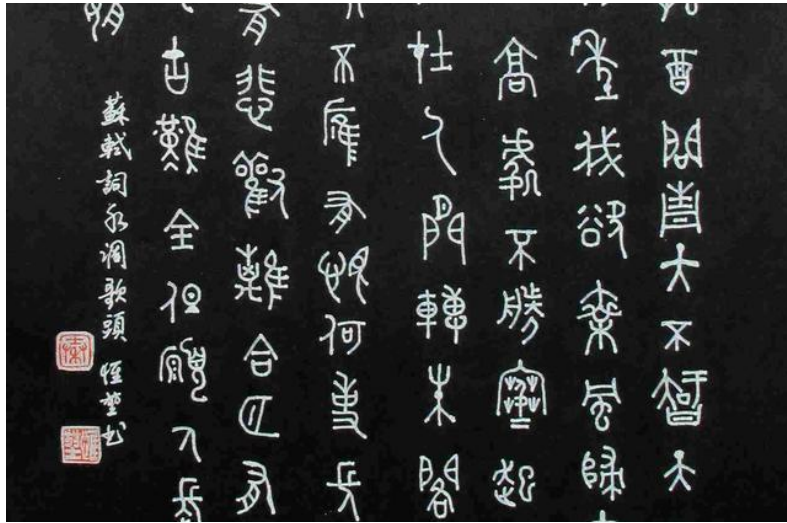 酉問青天不智天
年我欲乘風歸
高處不勝寒起
在人間轉朱閣
不雁有恨何事長
有悲歡離合月有
古難全但願人長
蘇軾詞水調歌頭